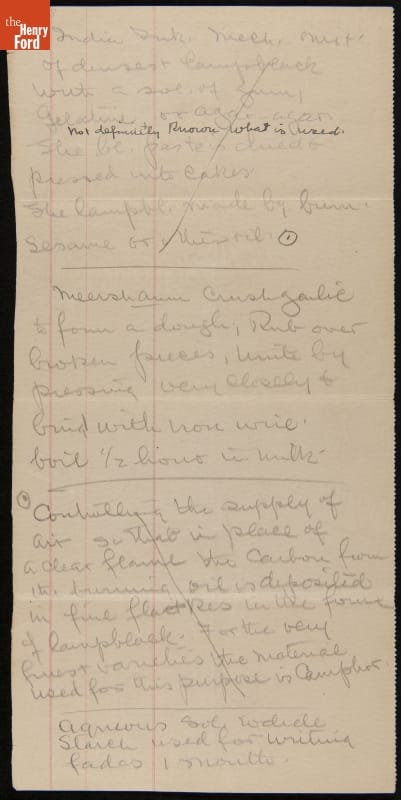 the
Henry
Ford
India Ink. Mech. mixt.
of densest lampblack
with a sol. of gum,
Gelatine or agar agar
not definitely known what is used.
The paste is dried &
pressed into cakes.
The lampbl. made by burn.
Sesame or this oil. 1
Meershaum Crush garlic
to form a dough, Rub over
broken pieces, Unite by
pressing very closely &
bind with iron wire.
boil 1/2 hour in milk.
Controlling the supply of
air so that in place of
a clear flame the Carbon from
the burning oil is deposited
in fine flakes in the form
of lampblack. For the very
finest varieties the material
used for this purpose is Camphor.
aqueous Sol. Iodide
Starch used for writing
fades 1 month.